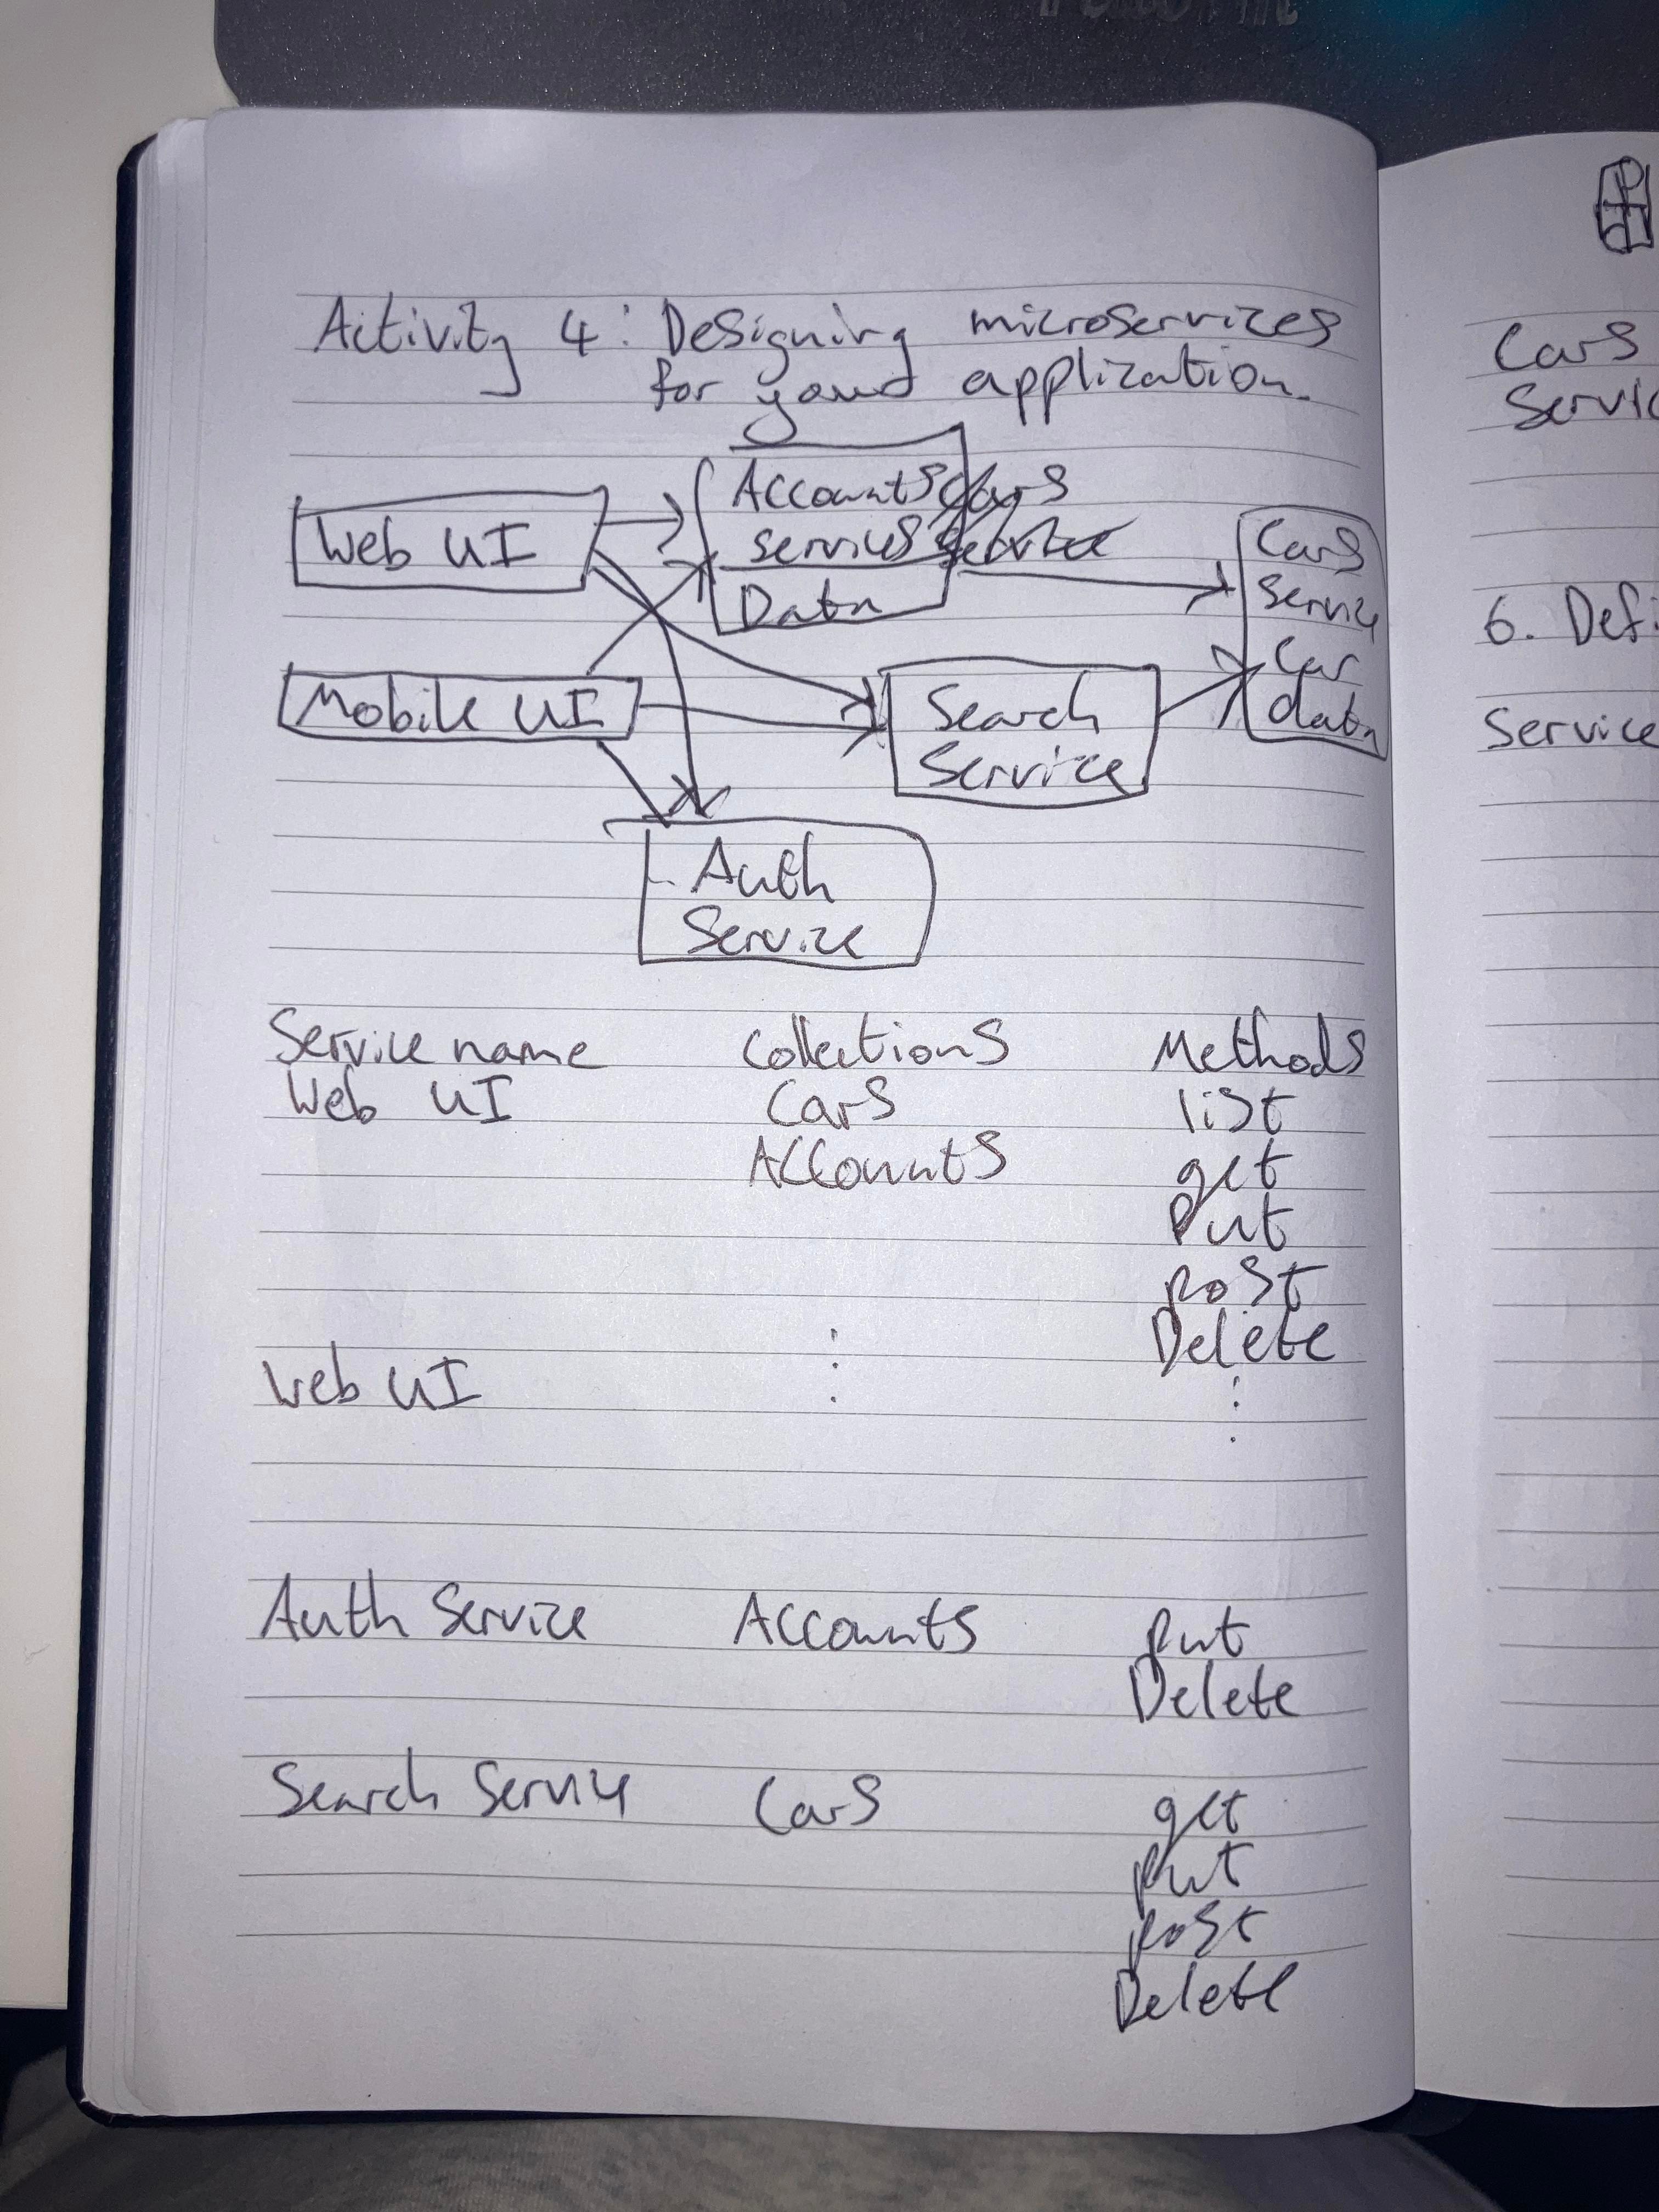 Activity 4: Designing microservices
for your application.
Web UI
Accounts
services
Data
Cars
service
Cars
Service
Car
data
Mobile UI
Search
Service
Auth
Service
Service name Collections Methods
Web UI Cars list
Accounts get
Put
post
Delete
Web UI : :
Auth Service Accounts put
Delete
Search Service Cars get
put
post
Delete
Cars
Servic
6. Defi
Service